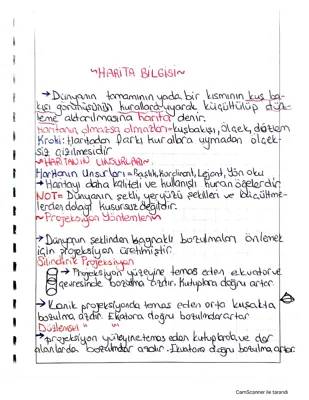 ~HARİTA BİLGİSİ~
→Dünyanın tamamının yada bir kısmının kuş ba-
kışı görünüşünün kurallara uyarak küçültülüp düz-
leme aktarılmasına harita denir.
Haritanın olmazsa olmazları=kuşbakışı, ölçek, düzlem
Kroki: Haritadan farkı kurallara uymadan ölçek-
siz çizilmesidir
~HARİTANIN UNSURLARI~
Haritanın Unsurları=Başlık, Kordinant, Lejant, Yön oku
→Haritayı daha kaliteli ve kullanışlı kuran ögelerdir
NOT= Dünyanın şekli, yeryüzü şekilleri ve küçültme-
lerden dolayı kusursuz değildir.
~Projeksiyon Yöntemleri~
→Dünyanın şeklinden kaynaklı bozulmaları önlemek
için projeksiyon üretilmiştir.
Silindirik Projeksiyon
→Projeksiyon yüzeyine temas eden ekvator ve
çevresinde bozulma azdır. Kutuplara doğru artar
→Konik projeksiyonda temas eden orta kuşakta
bozulma azdır. Ekvatora doğru bozulmalar artar
Düzlemsel " "
→projeksiyon yüzeyine temas eden kutuplarda ve dar
alanlarda bozulmalar azdır. Ekvatora doğru bozulma artar
CamScanner ile tarandı